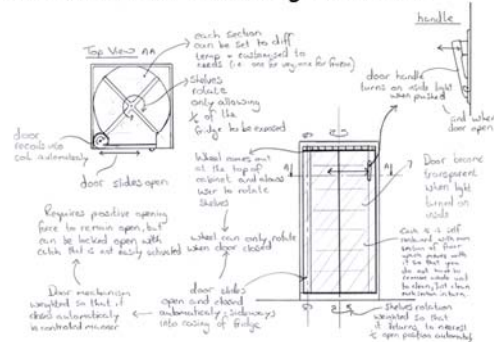 Top View AA
each section
can be set to diff
temp + customised to
needs (i.e. one for veg, one for freeze)
shelves
rotate
only allowing
of the
fridge to be exposed
door
recoils into
coil automatically
door slides open
handle
door handle
turns on inside light
when pushed
and when
door open
Wheel comes out
at the top of
cabinet and allows
user to rotate
shelves
wheel can only rotate
when door closed
A
A
Door becomes
transparent
when light
turned on
inside
Requires positive opening
force to remain open, but
can be locked open with
catch that is not easily activated
Door mechanism
weighted so that it
closes automatically
in controlled manner
door slides
open and closed
automatically; sideways
into casing of fridge
Each is self
contained, with own
section of floor
which moves with
it so that you
do not need to
remove whole unit
to clean, but clean
each section in turn.
shelves rotation
weighted so that
it returns to nearest
open position automatically